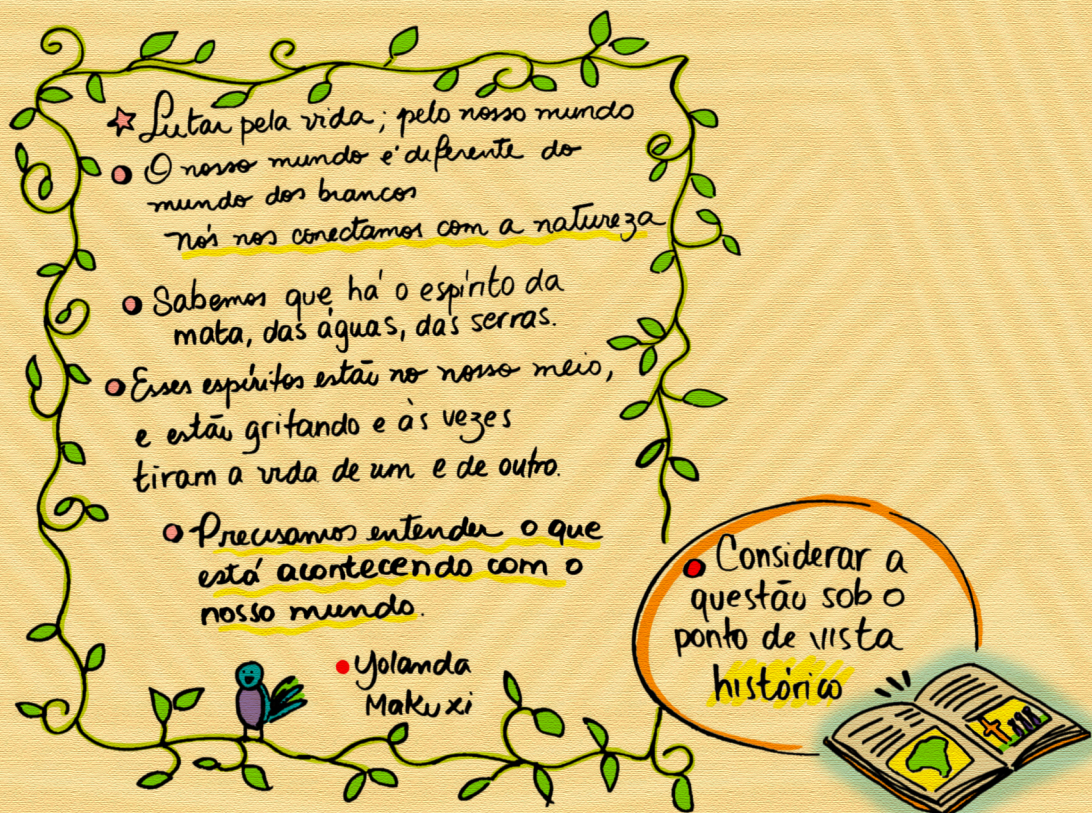 Lutar pela vida; pelo nosso mundo
O nosso mundo é diferente do
mundo dos brancos
nós nos conectamos com a natureza
Sabemos que há o espírito da
mata, das águas, das serras.
Esses espíritos estão no nosso meio,
e estão gritando e às vezes
tiram a vida de um e de outro.
Precisamos entender o que
está acontecendo com o
nosso mundo.
Yolanda
Makuxi
Considerar a
questão sob o
ponto de vista
histórico